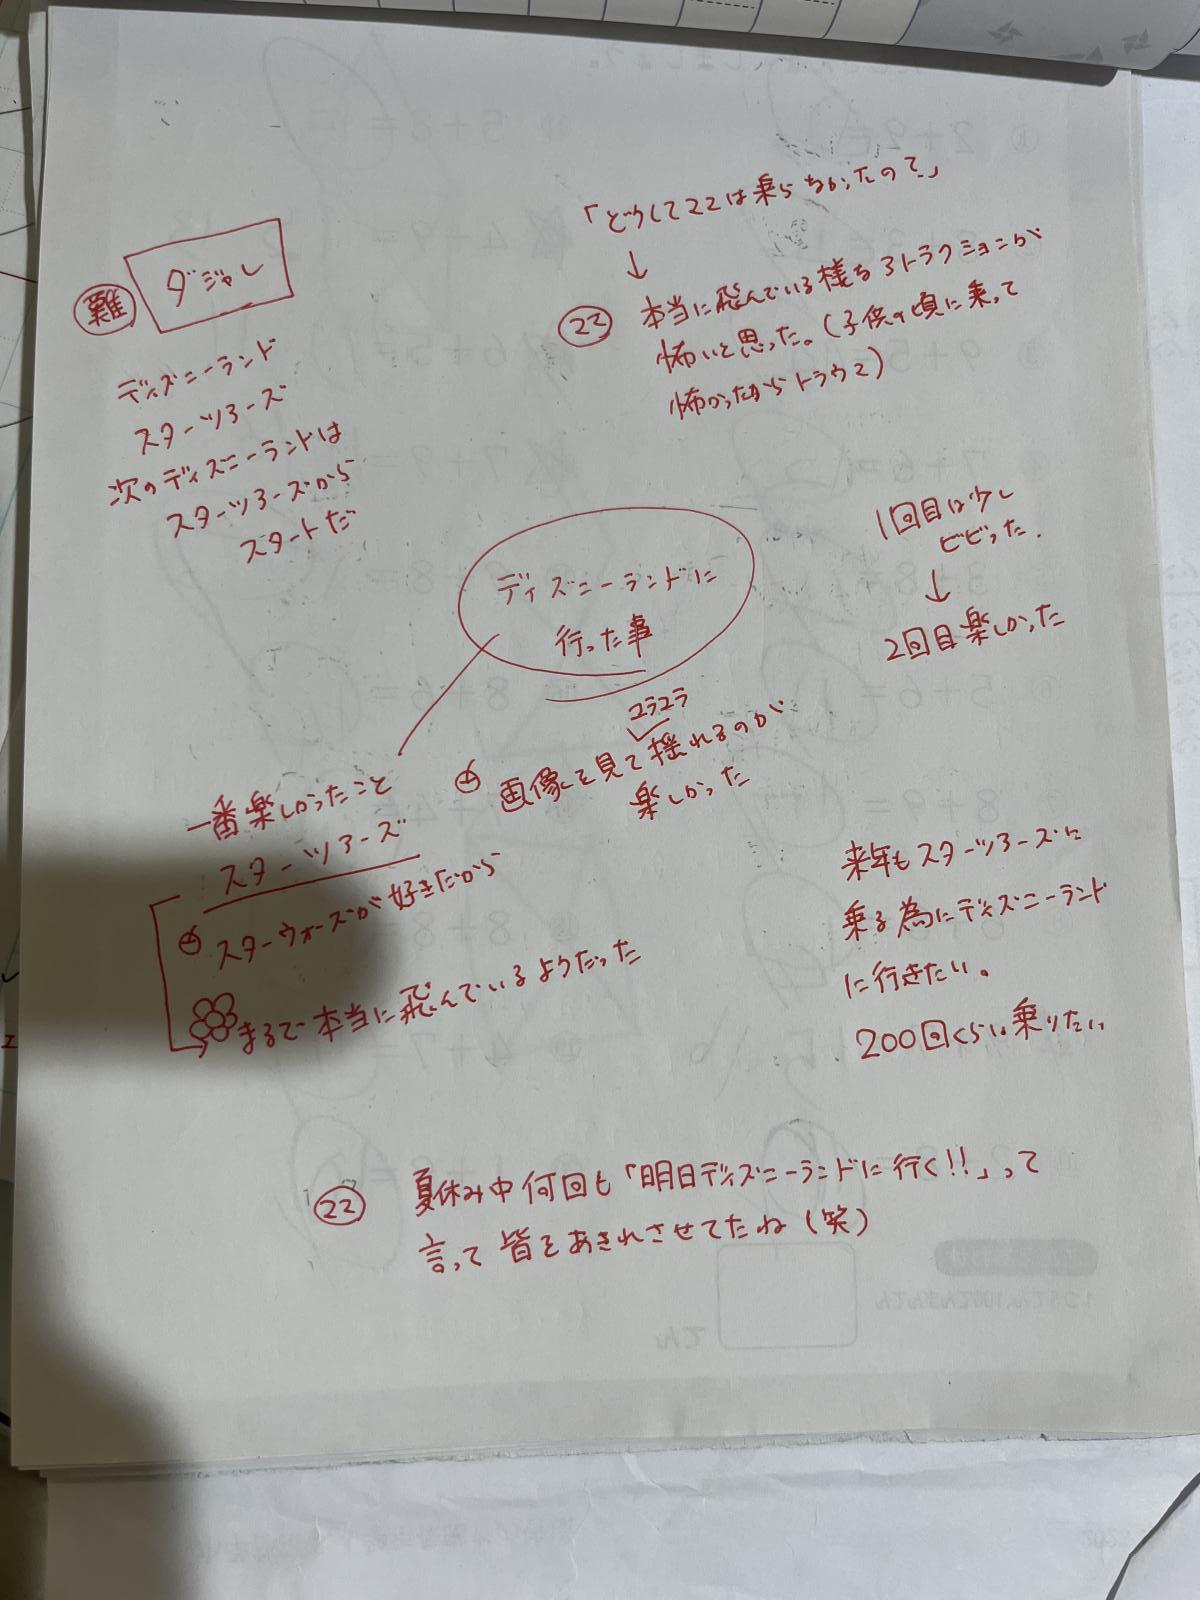 「どうしてママは乗らなかったの？」
↓
ママ 本当に飛んでいる様なアトラクションが
怖いと思った。(子供の頃に乗って
怖かったからトラウマ)
難 ダジャレ
ディズニーランド
スターツアーズ
次のディズニーランドは
スターツアーズから
スタートだ
1回目は少し
ビビった.
↓
2回目楽しかった
ディズニーランドに
行った事
ユラユラ
画像を見て揺れるのが
楽しかった
一番楽しかったこと
スターツアーズ
スターウォーズが好きだから
まるで本当に飛んでいるようだった
来年もスターツアーズに
乗る為にディズニーランド
に行きたい。
200回くらい乗りたい
ママ 夏休み中何回も「明日ディズニーランドに行く!!」って
言って皆をあきれさせてたね(笑)